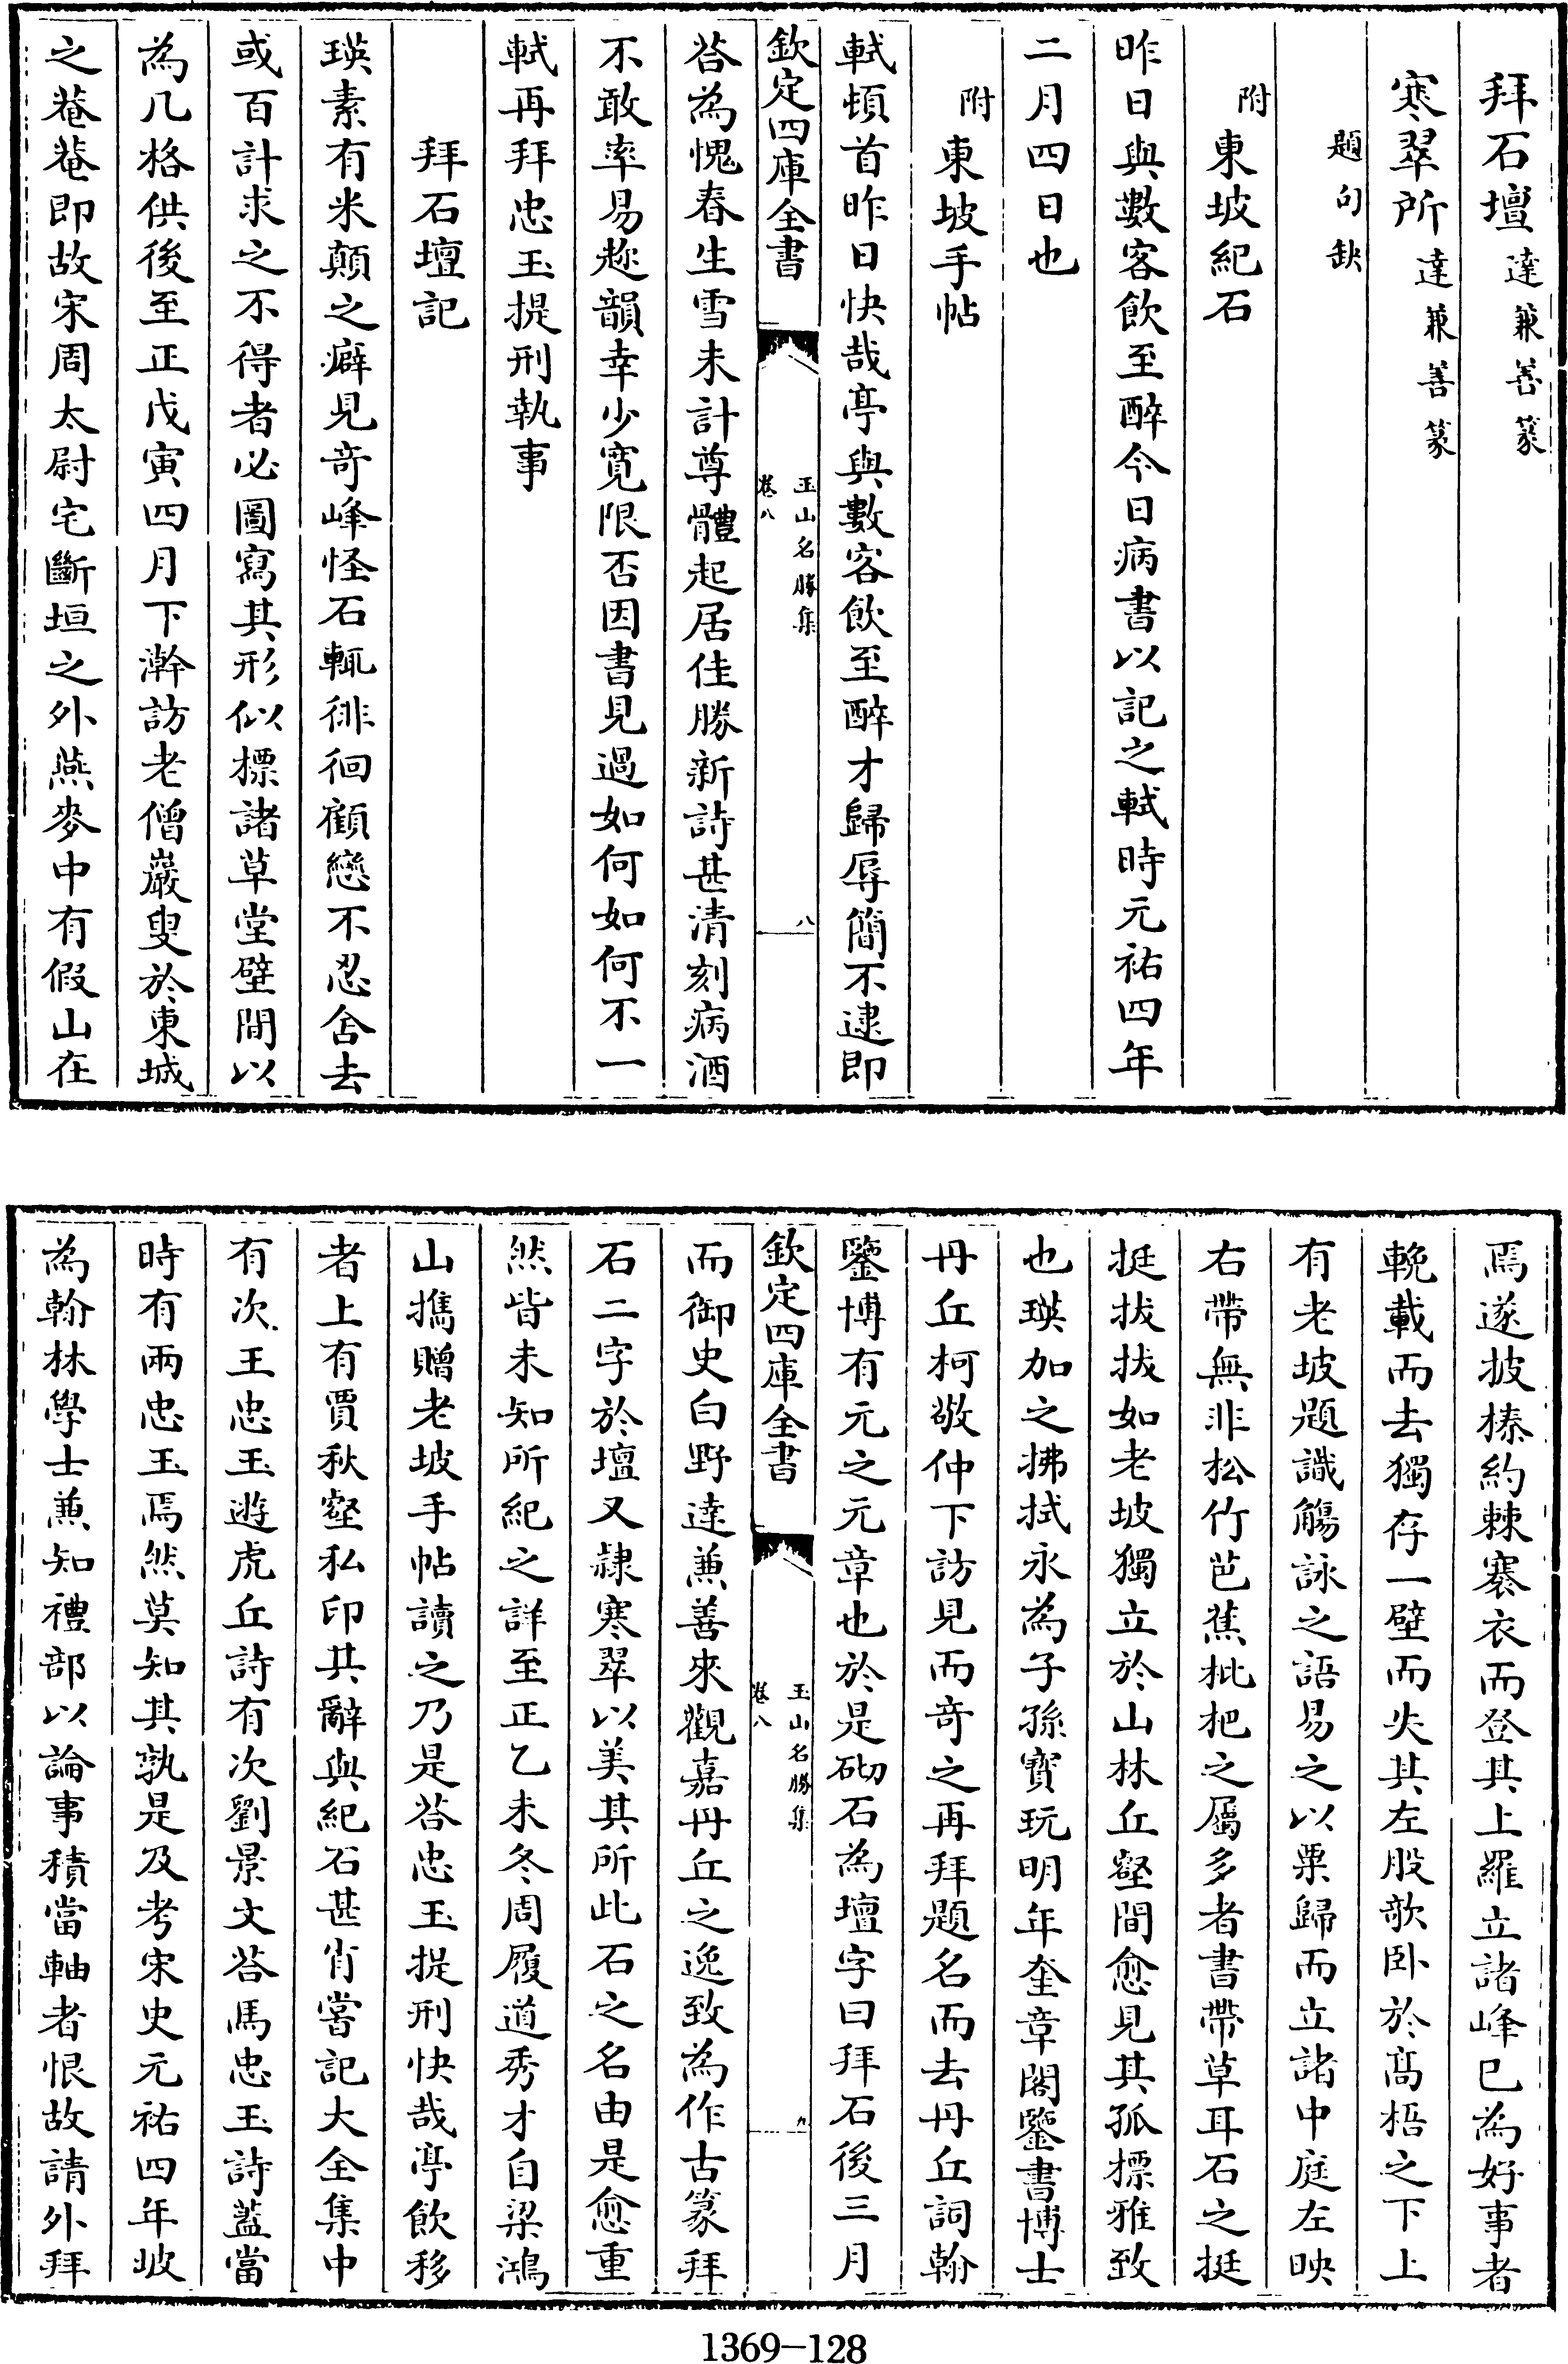 拜石壇達兼善篆
寒翠所達兼善篆
題句缺
附東坡紀石
昨日與數客飲至醉今日病書以記之軾時元祐四年
二月四日也
附東坡手帖
軾頓首昨日快哉亭與數客飲至醉才歸辱簡不逮即
欽定四庫全書
玉山名勝集
卷八
八
荅為愧春生雪未計尊體起居佳勝新詩甚清刻病酒
不敢率易趂韻幸少寛限否因書見過如何如何不一
軾再拜忠玉提刑執事
拜石壇記
瑛素有米顛之癖見奇峰怪石輒徘徊顧戀不忍舍去
或百計求之不得者必圖寫其形似標諸草堂壁間以
為几格供後至正戊寅四月下澣訪老僧巖叟於東城
之菴菴即故宋周太尉宅斷垣之外燕麥中有假山在
焉遂披榛約棘褰衣而登其上羅立諸峰已為好事者
輓載而去獨存一壁而失其左股欹卧於髙梧之下上
有老坡題識觴詠之語易之以粟歸而立諸中庭左映
右帶無非松竹芭蕉枇杷之屬多者書帶草耳石之挺
挺拔拔如老坡獨立於山林丘壑間愈見其孤標雅致
也瑛加之拂拭永為子孫寳玩明年奎章閣鑒書博士
丹丘柯敬仲下訪見而奇之再拜題名而去丹丘詞翰
鑒博有元之元章也於是砌石為壇字曰拜石後三月
欽定四庫全書
玉山名勝集
卷八
九
而御史白野達兼善來觀嘉丹丘之逸致為作古篆拜
石二字於壇又隸寒翠以美其所此石之名由是愈重
然皆未知所紀之詳至正乙未冬周履道秀才自梁鴻
山攜贈老坡手帖讀之乃是荅忠玉提刑快哉亭飲移
者上有賈秋壑私印其辭與紀石甚肖嘗記大全集中
有次王忠玉遊虎丘詩有次劉景文荅馬忠玉詩蓋當
時有兩忠玉焉然莫知其孰是及考宋史元祐四年坡
為翰林學士兼知禮部以論事積當軸者恨故請外拜
1369-128